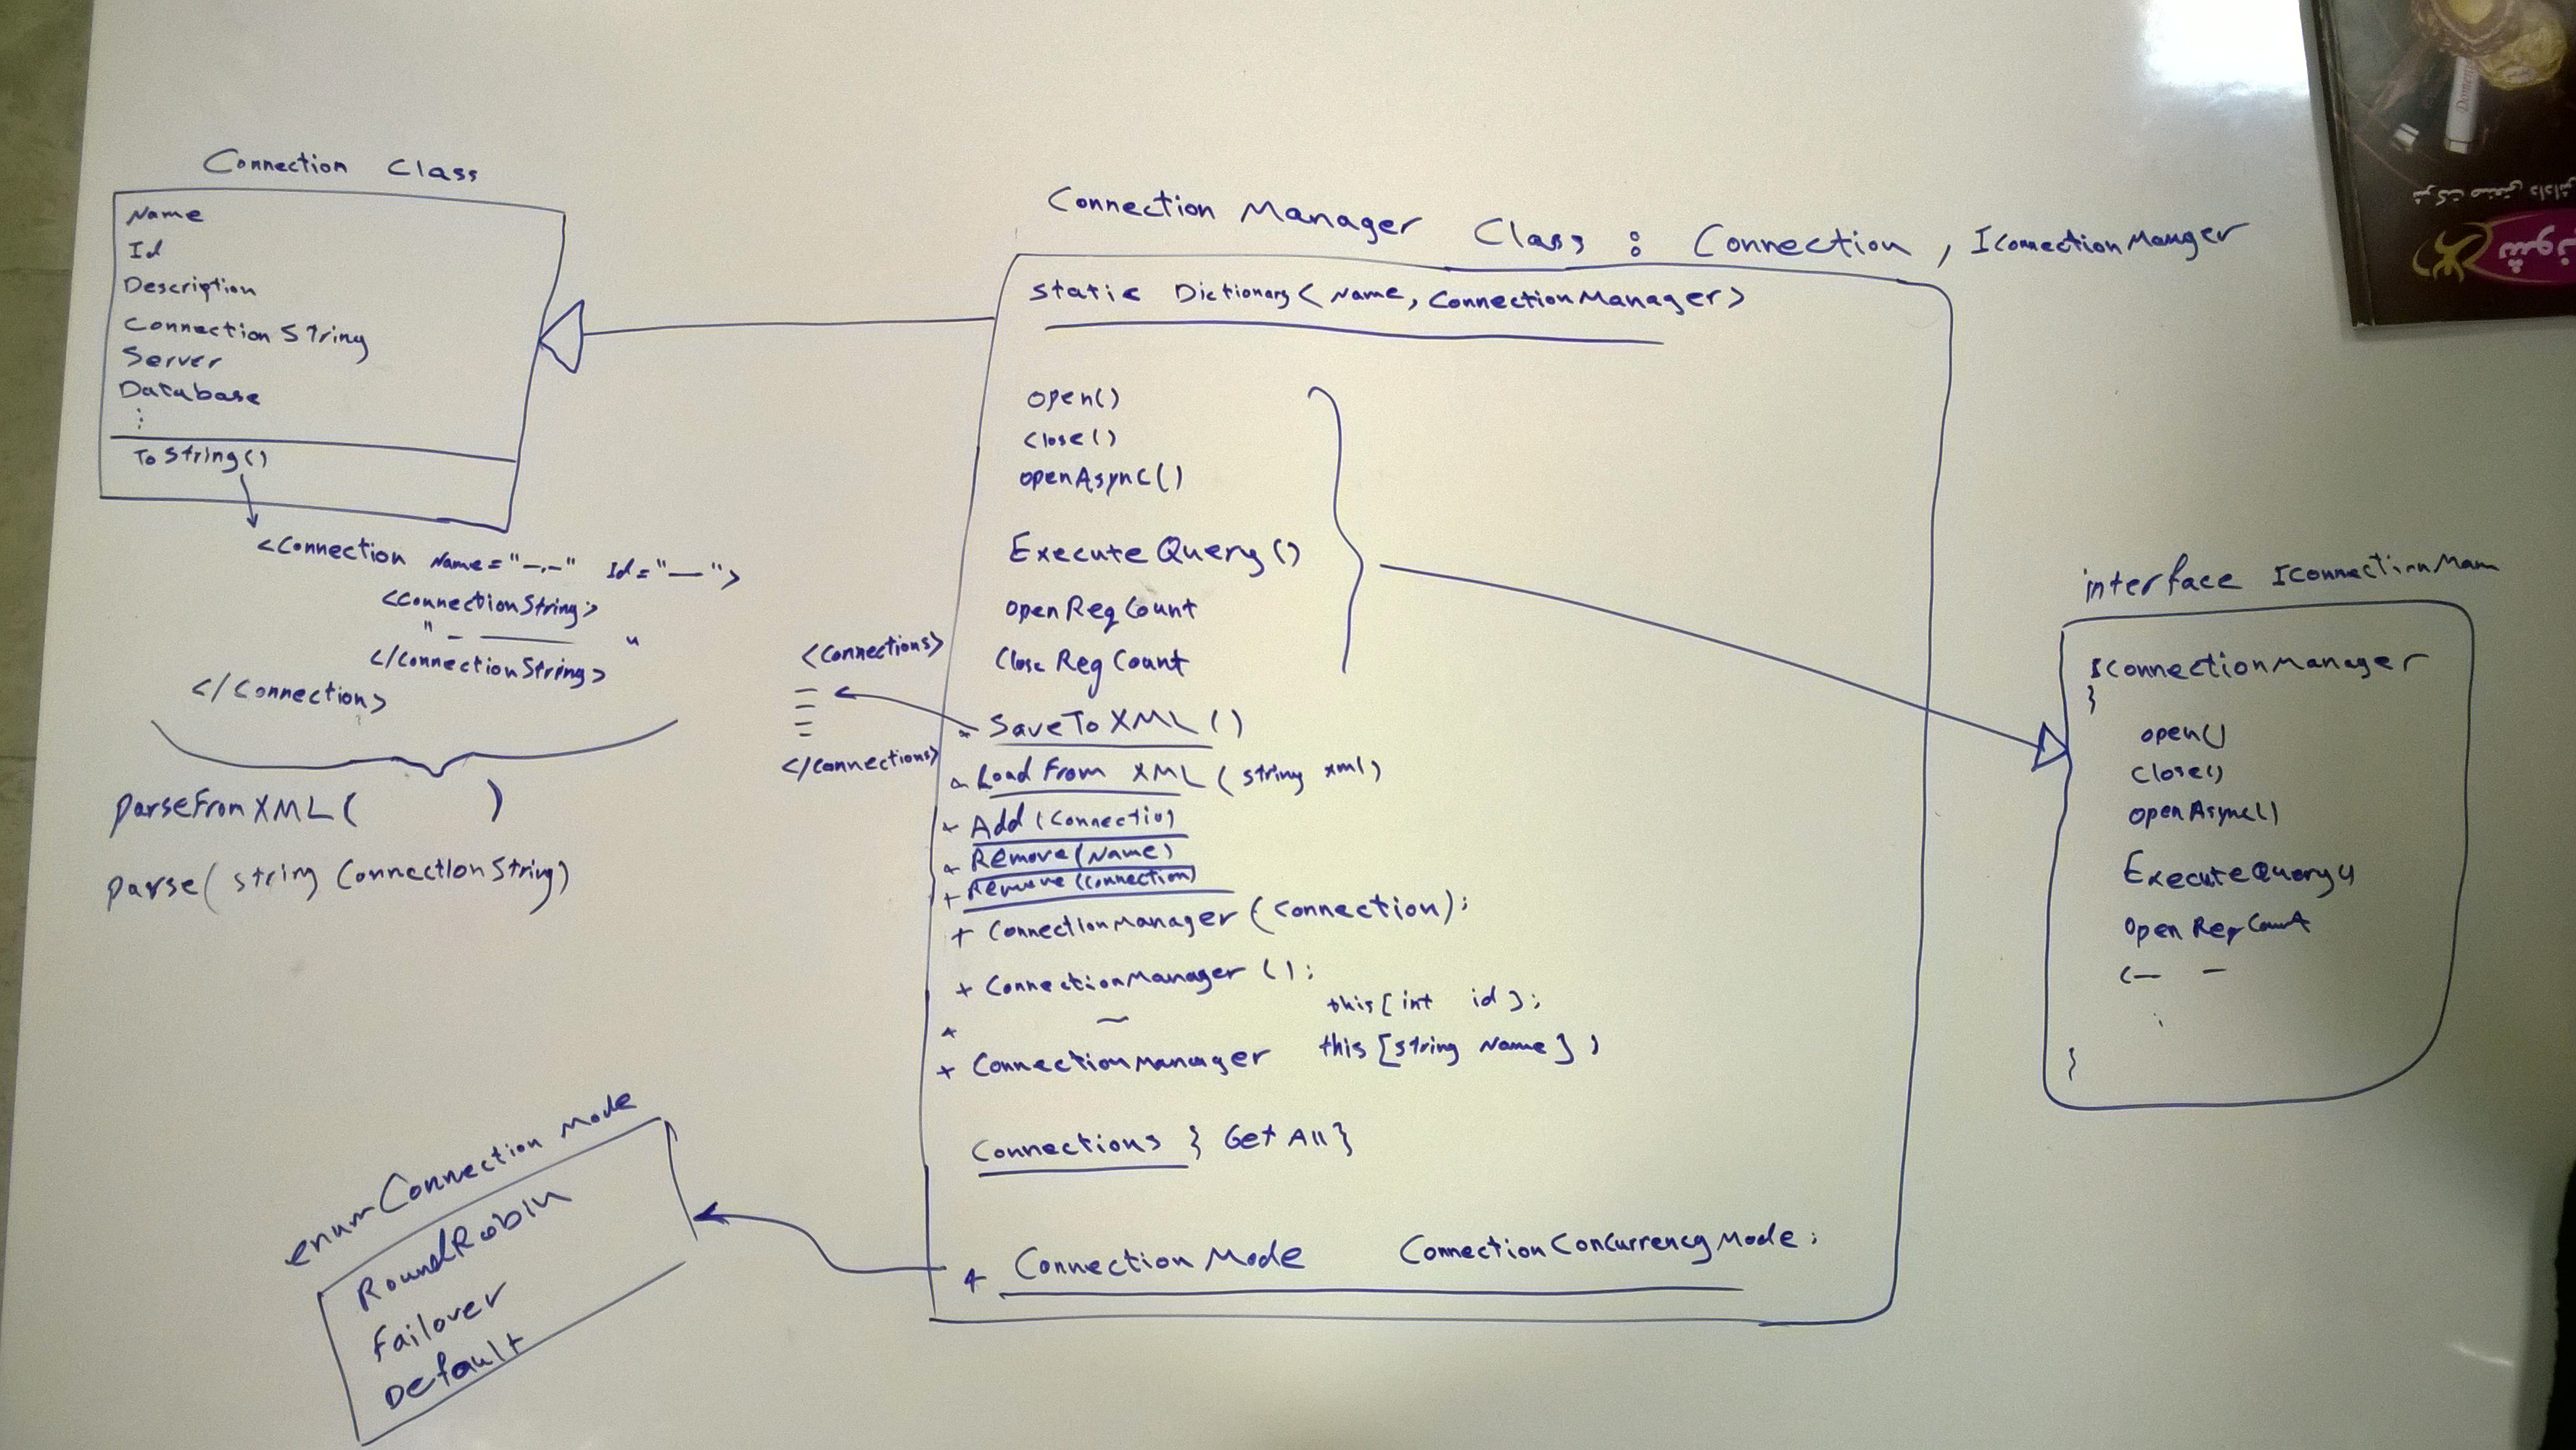 Connection Class
Name
Id
Description
Connection String
Server
Database
⋮
ToString()
<Connection Name="—.—" Id="——">
<ConnectionString>
" — ——— "
</ConnectionString>
</Connection>
parseFromXML( )
parse(string ConnectionString)
Connection Manager Class : Connection, IConnectionManger
static Dictionary<Name, ConnectionManager>
open()
close()
openAsync()
ExecuteQuery()
openReqCount
CloseReqCount
SaveToXML()
<Connections>
</Connections>
LoadFrom XML(string xml)
+ Add(Connectio)
Remove(Name)
+ Remove(Connection)
+ ConnectionManager(Connection);
+ ConnectionManager();
this[int id];
+ ConnectionManager this[string Name];
Connections } Get All }
+ ConnectionMode ConnectionConcurrencyMode;
enum Connection Mode
RoundRobin
Failover
Default
interface IConnectionMam
IConnectionManager
}
open()
Close()
openAsync()
ExecuteQuery()
openReqCount
(— —
}
شونیز